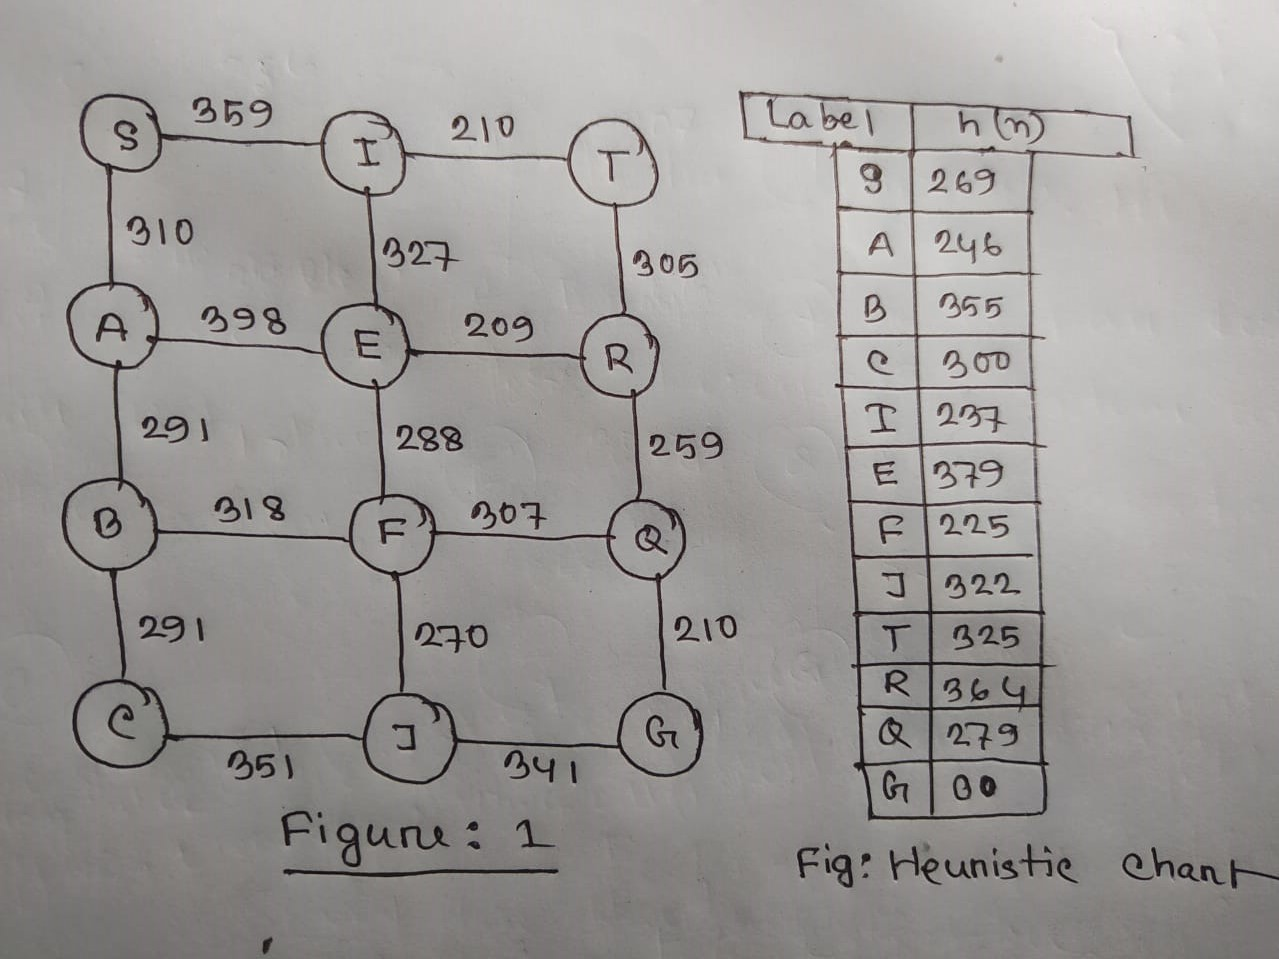 S 359 I 210 T
310 327 305
A 398 E 209 R
291 288 259
B 318 F 307 Q
291 270 210
C 351 J 341 G
Figure: 1
Label h(n)
S 269
A 246
B 355
C 300
I 237
E 379
F 225
J 322
T 325
R 364
Q 279
G 00
Fig: Heuristic chart